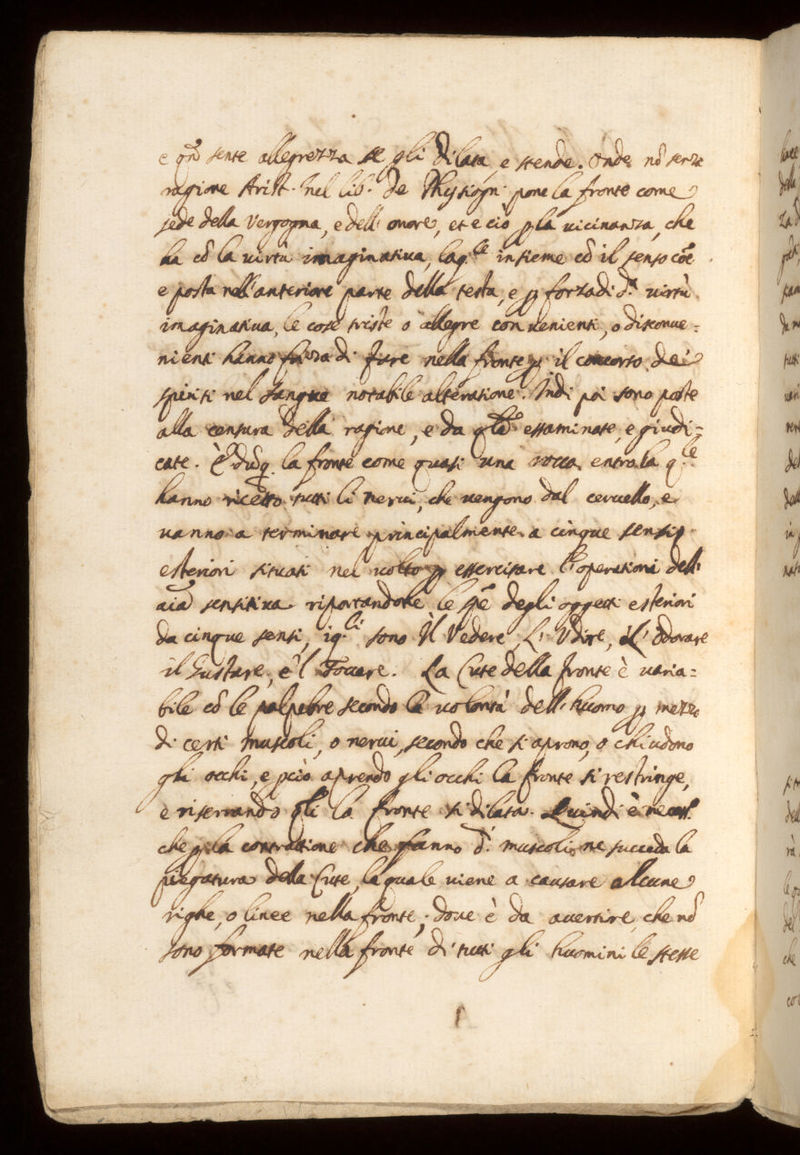 e qñ sente allegrezza se gli dilata, e stende. Onde nõ senza
ragione Arist. nel lib. De Physiogn. pone la fronte come
sede della Vergogna, e dell' onore, et e ciò ꝑ la uicinanza, che
ha cõ la uirtù imaginatiua, laq.le insieme cõ il senso cõe
e posta nell'anteriore parte della testa, e ꝑ forza di d.a uirtù
imaginatiua, le cose triste o allegre conuenienti, o disconue=
nienti hanno forza di fare nella fronte ꝑ il concorso dei
spiriti nel sangue notabile alteratione. Indi poi sono poste
alla censura della ragione, e da q̃lla essaminate, e giudi=
cate. È dũq. la fronte come quasi una rocca, entro la q.le
hanno ricetto tutti li nerui, che uengono dal ceruello, e
uanno a terminare principalmente a cinque sensi
esteriori situati nel uolto ꝑ essercitare l'operationi dell'
aĩa sensitiua riportandole le spẽ degli oggetti esteriori
da cinque sensi, i q.li sono Il Vedere, L' Vdire, L' Odorare
il Gustare, e 'l Toccare. La Cute della fronte è uaria=
bile cõ le palpebre secondo la uolontà dell' huomo ꝑ mezzo
di certi muscoli, o nerui, secondo che si aprono, o chiudono
gli occhi, e ꝑciò aprendo gli occhi la fronte si restringe,
e riserrando q̃lli la fronte si dilata. Quindi è necess.
che ꝑ la contrattione che fanno d.i muscoli, ne succeda la
piegatura della Cute, la quale uiene a causare alcune
righe, o linee nella fronte; doue è da auertire, che nõ
sono formate nella fronte di tutti gli huomini le stesse